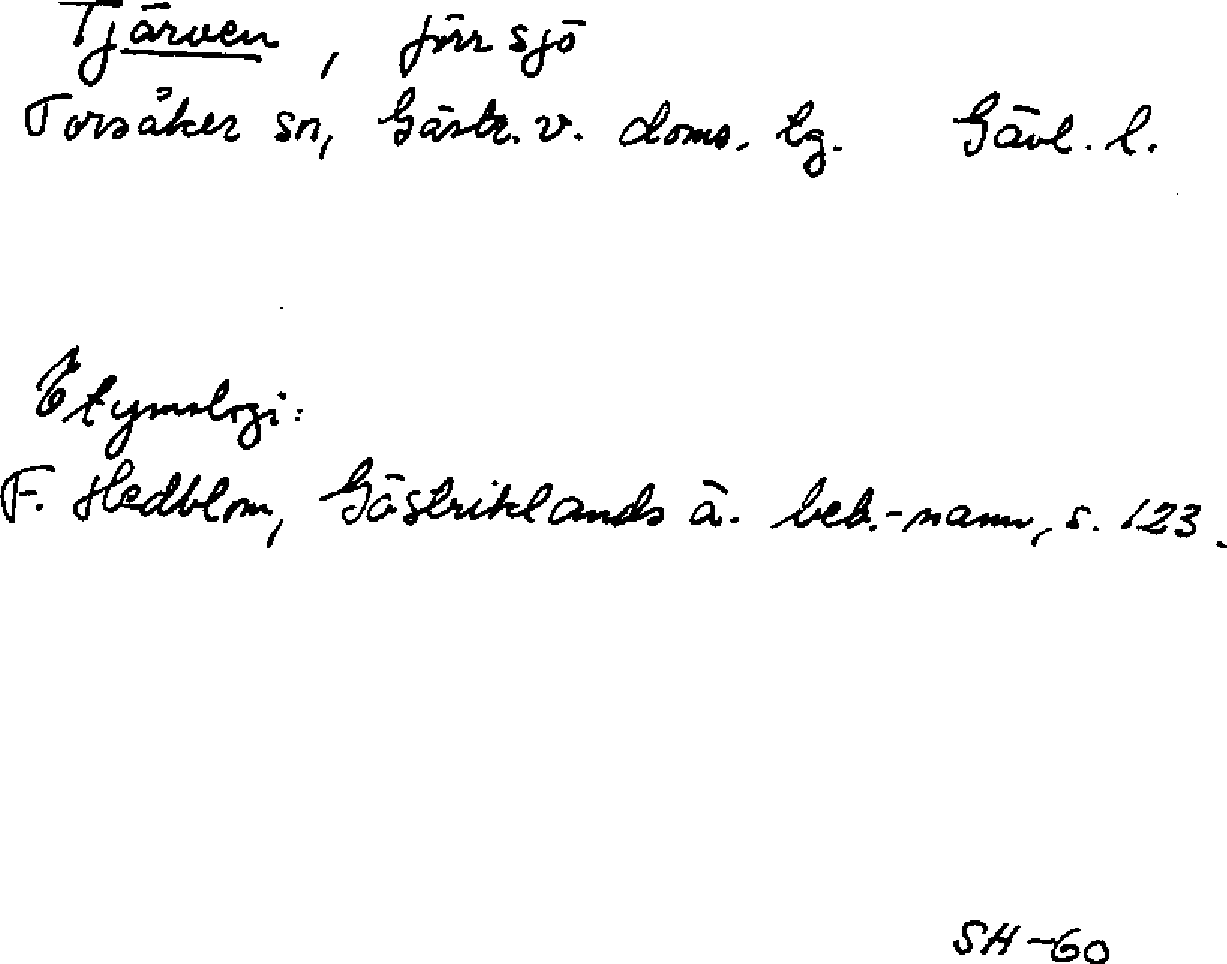 Tjärven, förr sjö
Torsåker sn, Gästr. v. doms. tg. Gävl. l.
Etymologi:
F. Hedblom, Gästriklands ä. beb.-namn, s. 123.
SH-60